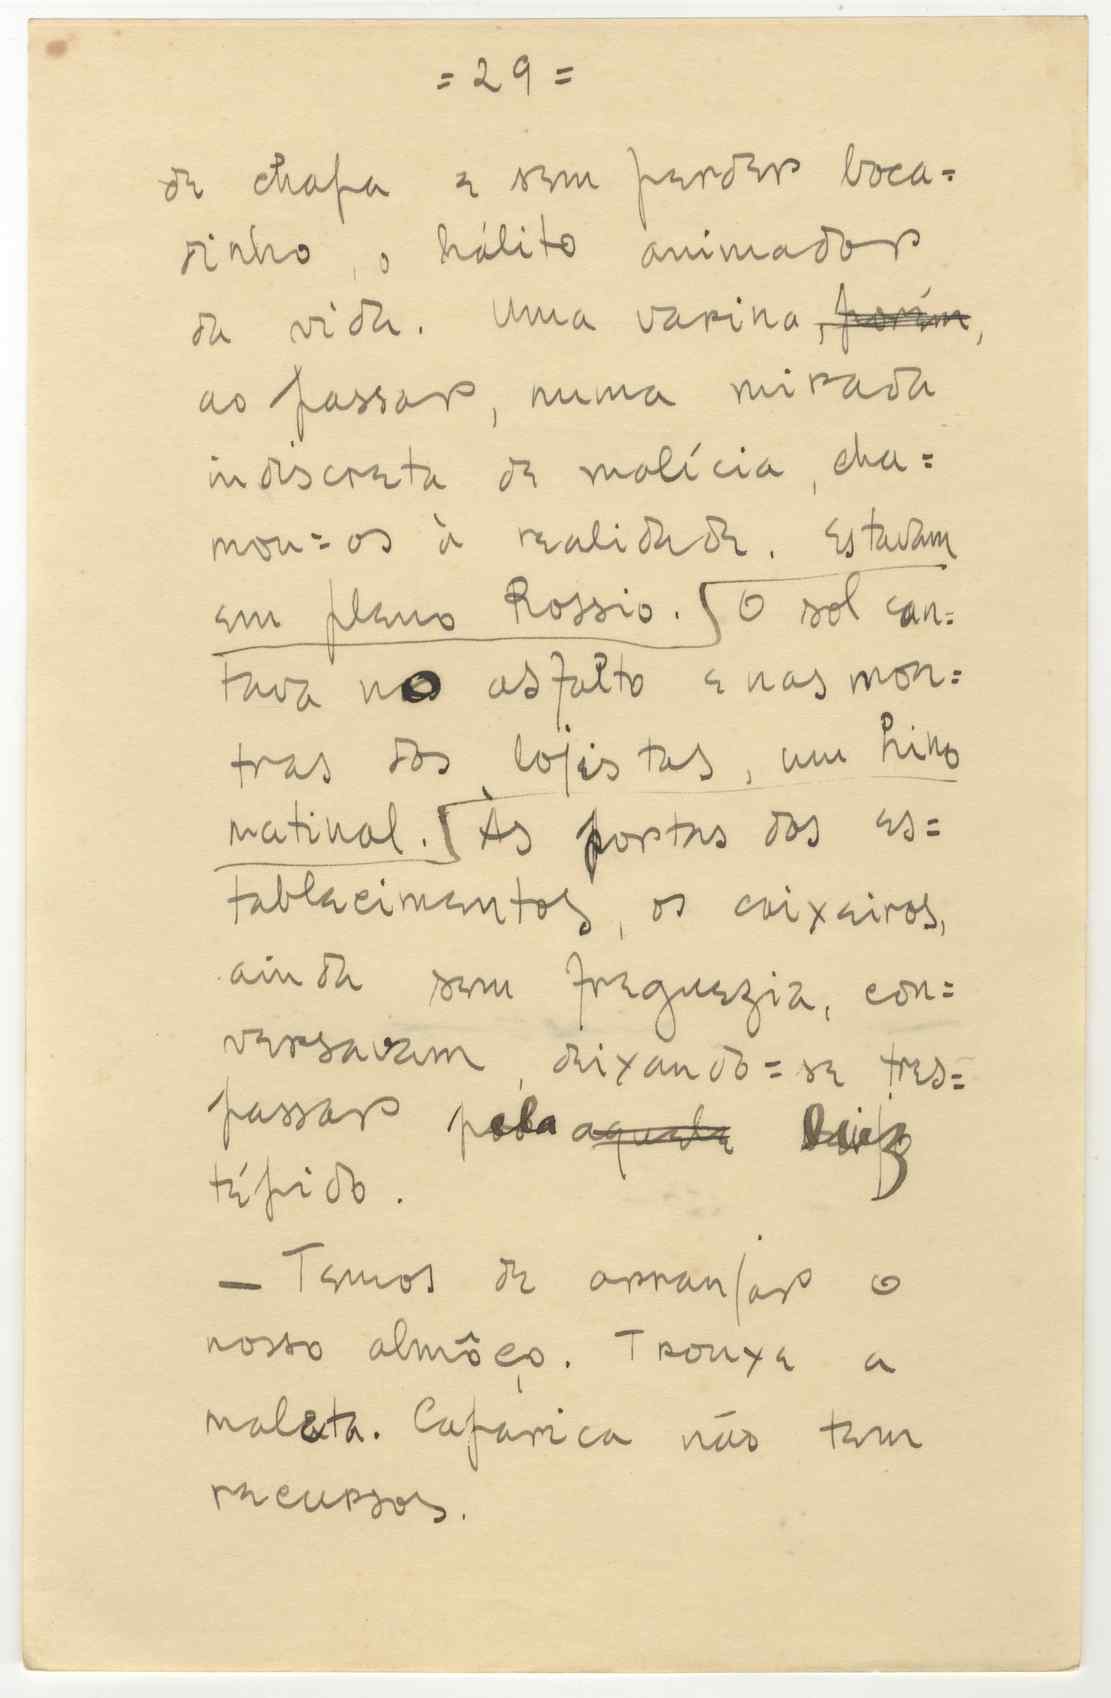 =29=
de chapa e sem perder boca=
dinho, o hálito animador
da vida. Uma varina, porém,
ao passar, numa mirada
indiscreta de malícia, cha=
mou=os à realidade. Estavam
em pleno Rossio. O sol can=
tava no asfalto e nas mon=
tras dos lojistas, um hino
matinal. Às portas dos es=
tablecimentos, os caixeiros,
ainda sem freguezia, con=
versavam, deixando=se tres=
passar pela aquele luz
tépido.
— Temos de arranjar o
nosso almôço. Trouxe a
maleta. Caparica não tem
recursos.